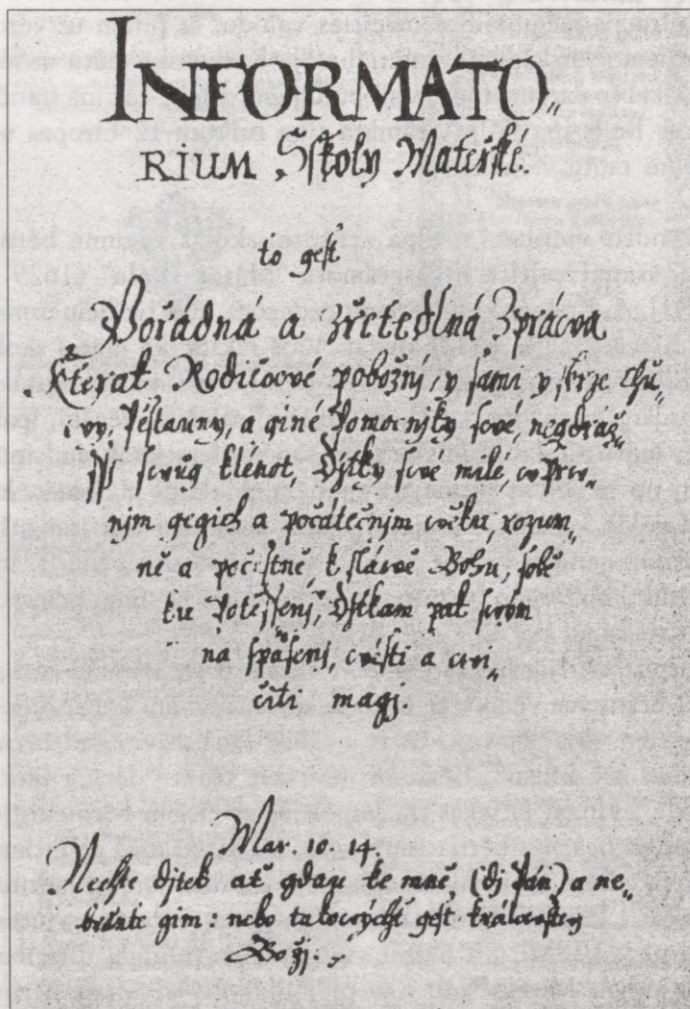 INFORMATO„
RIUM Sſkoly Mateřſké.
to geſt
Porádná a zřetedlná Zpráwa
kterak Rodičowé pobožnj, y ſami y ſkrze Chů„
wy, Pěſtauny, a giné Pomocnjky ſwé, negdráž„
ſſj ſwůg klénot, Djtky ſwé milé, w prw„
njm gegich a počátečnjm wěku, rozum„
ně a počeſtně, k ſláwě Bohu, ſobě
ku Potěſſenj, Djtkám pak ſwým
na ſpaſenj, wéſti a cwi„
čiti magj.
Mar. 10. 14.
Nechte djtek ať gdau ke mně (dj Pán) a ne„
braňte gim: nebo takowých geſt králowſtwj
Božj.